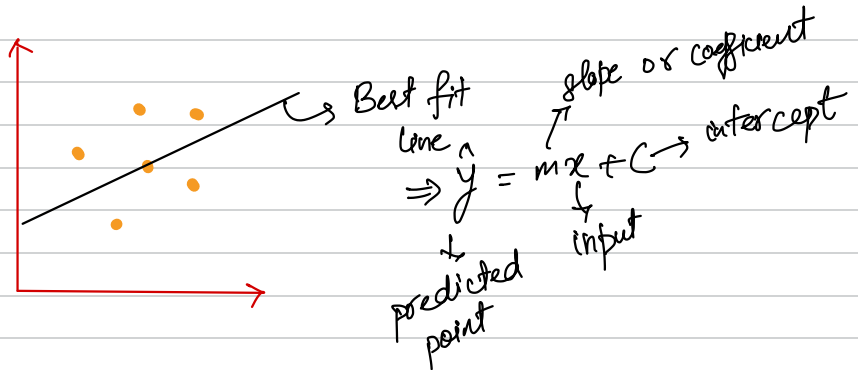 Best fit
line
⇒ ŷ = mx + C
slope or coefficient
intercept
input
predicted
point